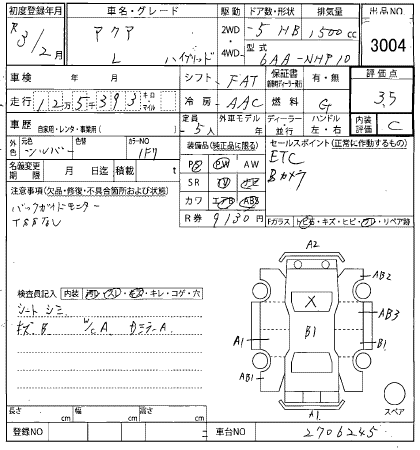 初度登録年月 車名・グレード 駆動 ドア数・形状 排気量 出品NO
R3/2月 アクア L ハイブリッド 2WD 4WD -5HB 1500cc 3004
型式 6AA-NHP10
車検 年 月 シフト FAT 保証書 有・無 評価点
走行 125,393 キロ マイル 冷房 AAC 燃料 G 3.5
車歴 自家用・レンタ・事業用( ) 定員 5人 外車モデル 年 ディーラー 並行 ハンドル 左・右 内装評価 C
外色 元色 シルバー カラーNO 1F7 装備品(純正品に限る) セールスポイント(正常に作動するもの)
名義変更期限 月 日迄 積載 t PS PW AW ETC
SR TV ナビ Bカメラ
注意事項(欠品・修復・不具合箇所および状態) カワ エアB ABS
バックガイドモニター R券 9130円 Fガラス トビ石・キズ・ヒビ・ワレ・リペア跡
A2
AB2
検査員記入 内装 ヨゴレ・スレ・キズ・キレ・コゲ・穴 X AB3
シート シミ A1 B1 B1
キズB W/C A Dミラー A AB1
スペア
長さ cm 幅 cm 高さ cm A1
登録NO 車台NO 2706245